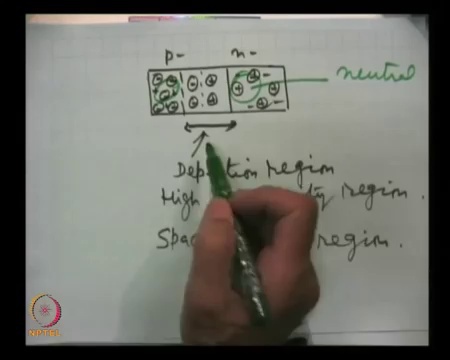 p- n-
neutral
Depletion region
High region.
Space region.
NPTEL